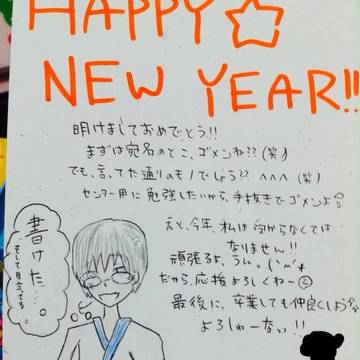 HAPPY☆
NEW YEAR!!
明けましておめでとう!!
まずは宛名のとこ、ゴメンね??(笑)
でも、言ってた通りのモノでしょう?? ^^^ (笑)
センター用に勉強したいから、手抜きでゴメンよ
えと、今年、私は向かなくては
なりません!!
頑張るよ、うん。(`・ω・´
だから、応援よろしくねー☺
最後に、卒業しても仲良くしよう?
よろしゅーなっっ!!
書けた…
そして目立ってる。